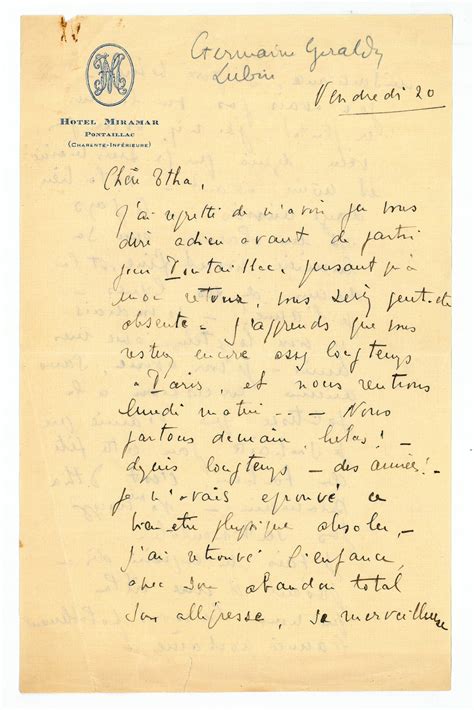 Germaine Geraldy
Lubin
Vendredi 20
HM
HOTEL MIRAMAR
PONTAILLAC
(CHARENTE-INFÉRIEURE)
Chère Itha,
J'ai regretté de n'avoir pu vous
dire adieu avant de partir
pour Pontaillac, pensant qu'à
mon retour, vous seriez
absente - J'apprends que vous
restez encore assez longtemps
à Paris, et nous rentrons
lundi matin - - Nous
partons demain, hélas! -
depuis longtemps - des années! -
je n'avais éprouvé ce
bien-être physique absolu, -
j'ai retrouvé l'enfance
avec son abandon total
son allégresse, sa merveilleuse